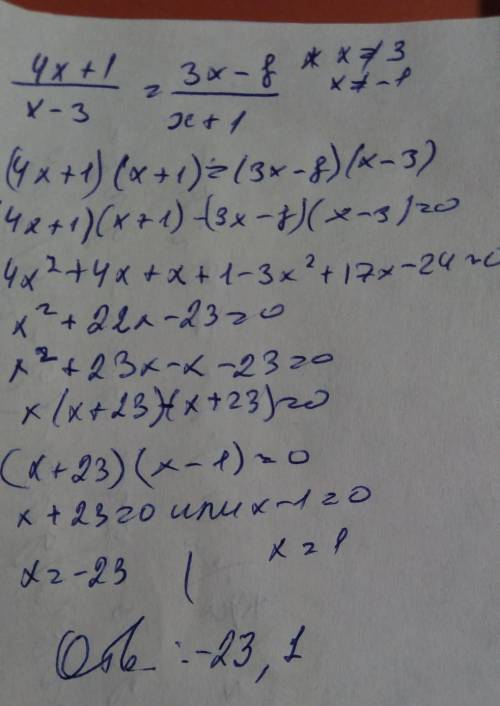 (4x+1)/(x-3) = (3x-8)/(x+1) * x≠3
x≠-1
(4x+1)(x+1)=(3x-8)(x-3)
(4x+1)(x+1)-(3x-8)(x-3)=0
4x²+4x+x+1-3x²+17x-24=0
x²+22x-23=0
x²+23x-x-23=0
x(x+23)-(x+23)=0
(x+23)(x-1)=0
x+23=0 или x-1=0
x=-23 | x=1
Отв: -23, 1